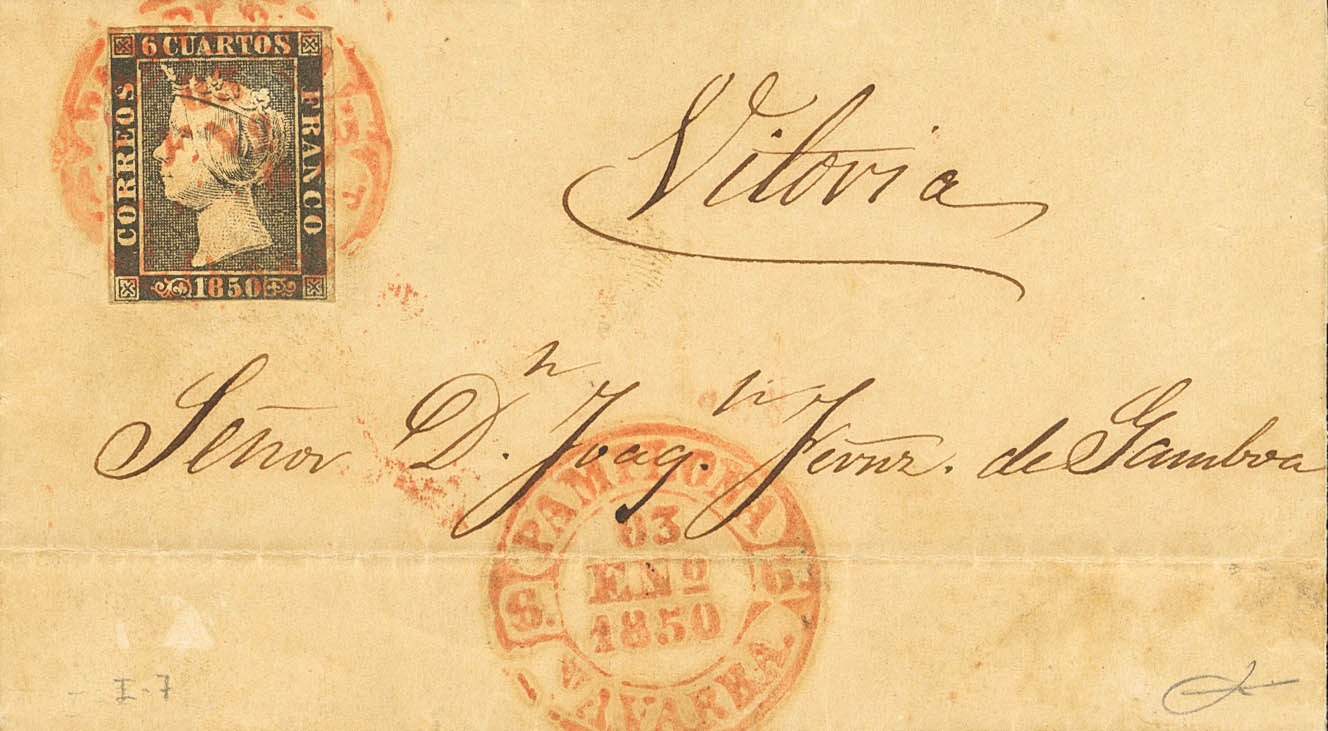 6 CUARTOS
CORREOS
FRANCO
1850
Vitoria
Señor D.n Joaq.n Fernz. de Gamboa
PAMPLONA
03
ENº
1850
S. 6.
NAVARRA.
I-7